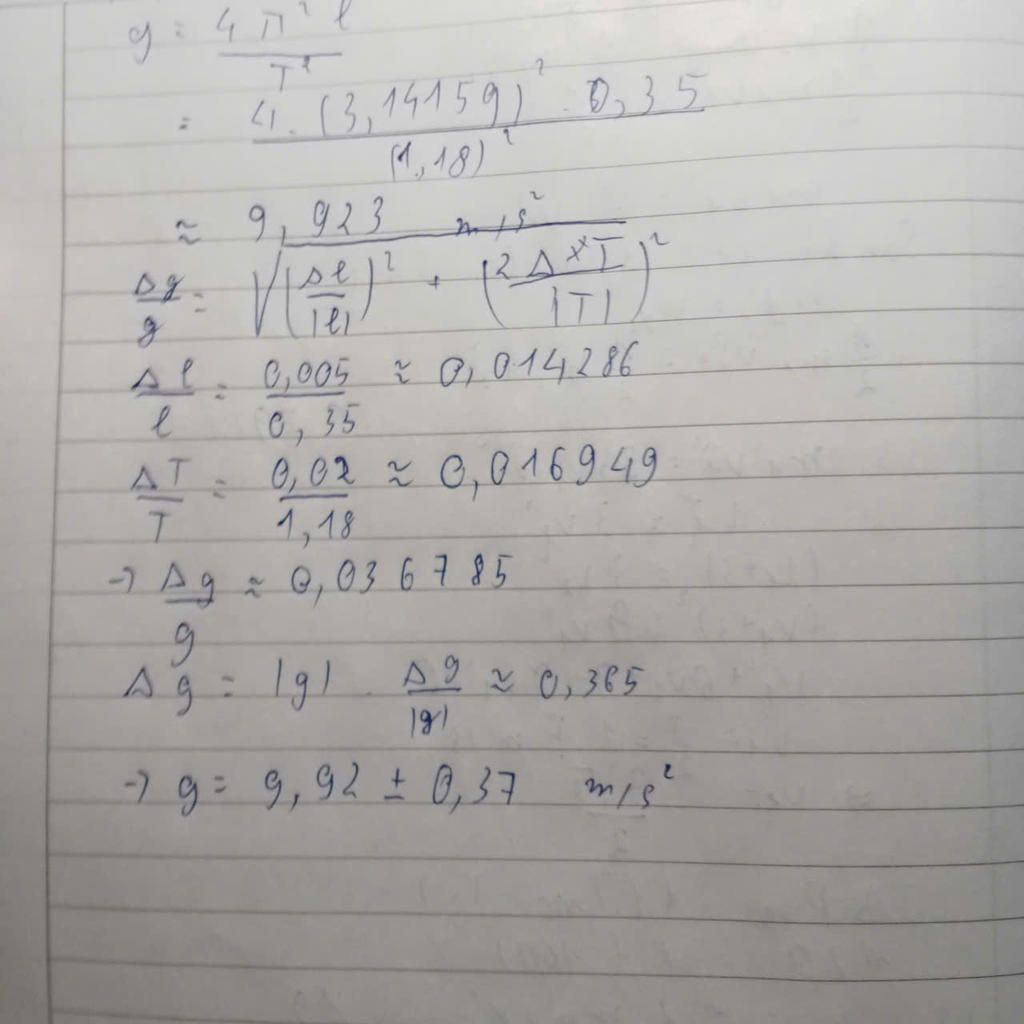 g = 4π² l / T²
= 4 . (3,14159)² . 0,35 / (1,18)²
≈ 9,923 m/s²
Δg / g = √((Δl / |l|)² + (2 ΔT / |T|)²)
Δl / l = 0,005 / 0,35 ≈ 0,014286
ΔT / T = 0,02 / 1,18 ≈ 0,016949
→ Δg / g ≈ 0,036785
Δg = |g| . Δg / |g| ≈ 0,365
→ g = 9,92 ± 0,37 m/s²